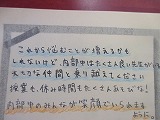 これから悩むことが増えるかも
しれないけど、内部中はたくさん良い先生がいて
大切な仲間と乗り越えてください
授業も、休み時間もたくさんあそびな!
内部中のみんなが笑顔でいられますように。